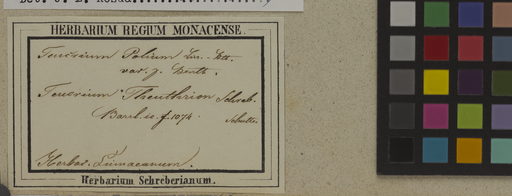 HERBARIUM REGIUM MONACENSE.
Teucrium Polium Lin.
var. γ. Benth.
Teucrium Theuthrion Schreb.
Barrel. ic. f. 1074. Schultes
Herbar.
Herbarium Schreberianum.